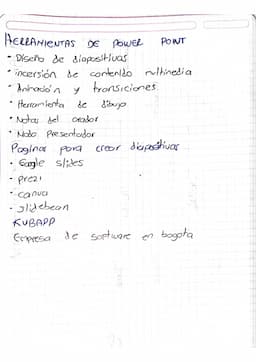 HERRAMIENTAS DE POWER POINT
• Diseño de diapositivas
• incersión de contenido multimedia
• Animación y transiciones
• Herramienta de dibujo
• Notas del orador
• Modo Presentador
Paginas para crear diapositivas
• Google slides
• prezi
• canva
• slidebean
KUBAPP
Empresa de software en bogota